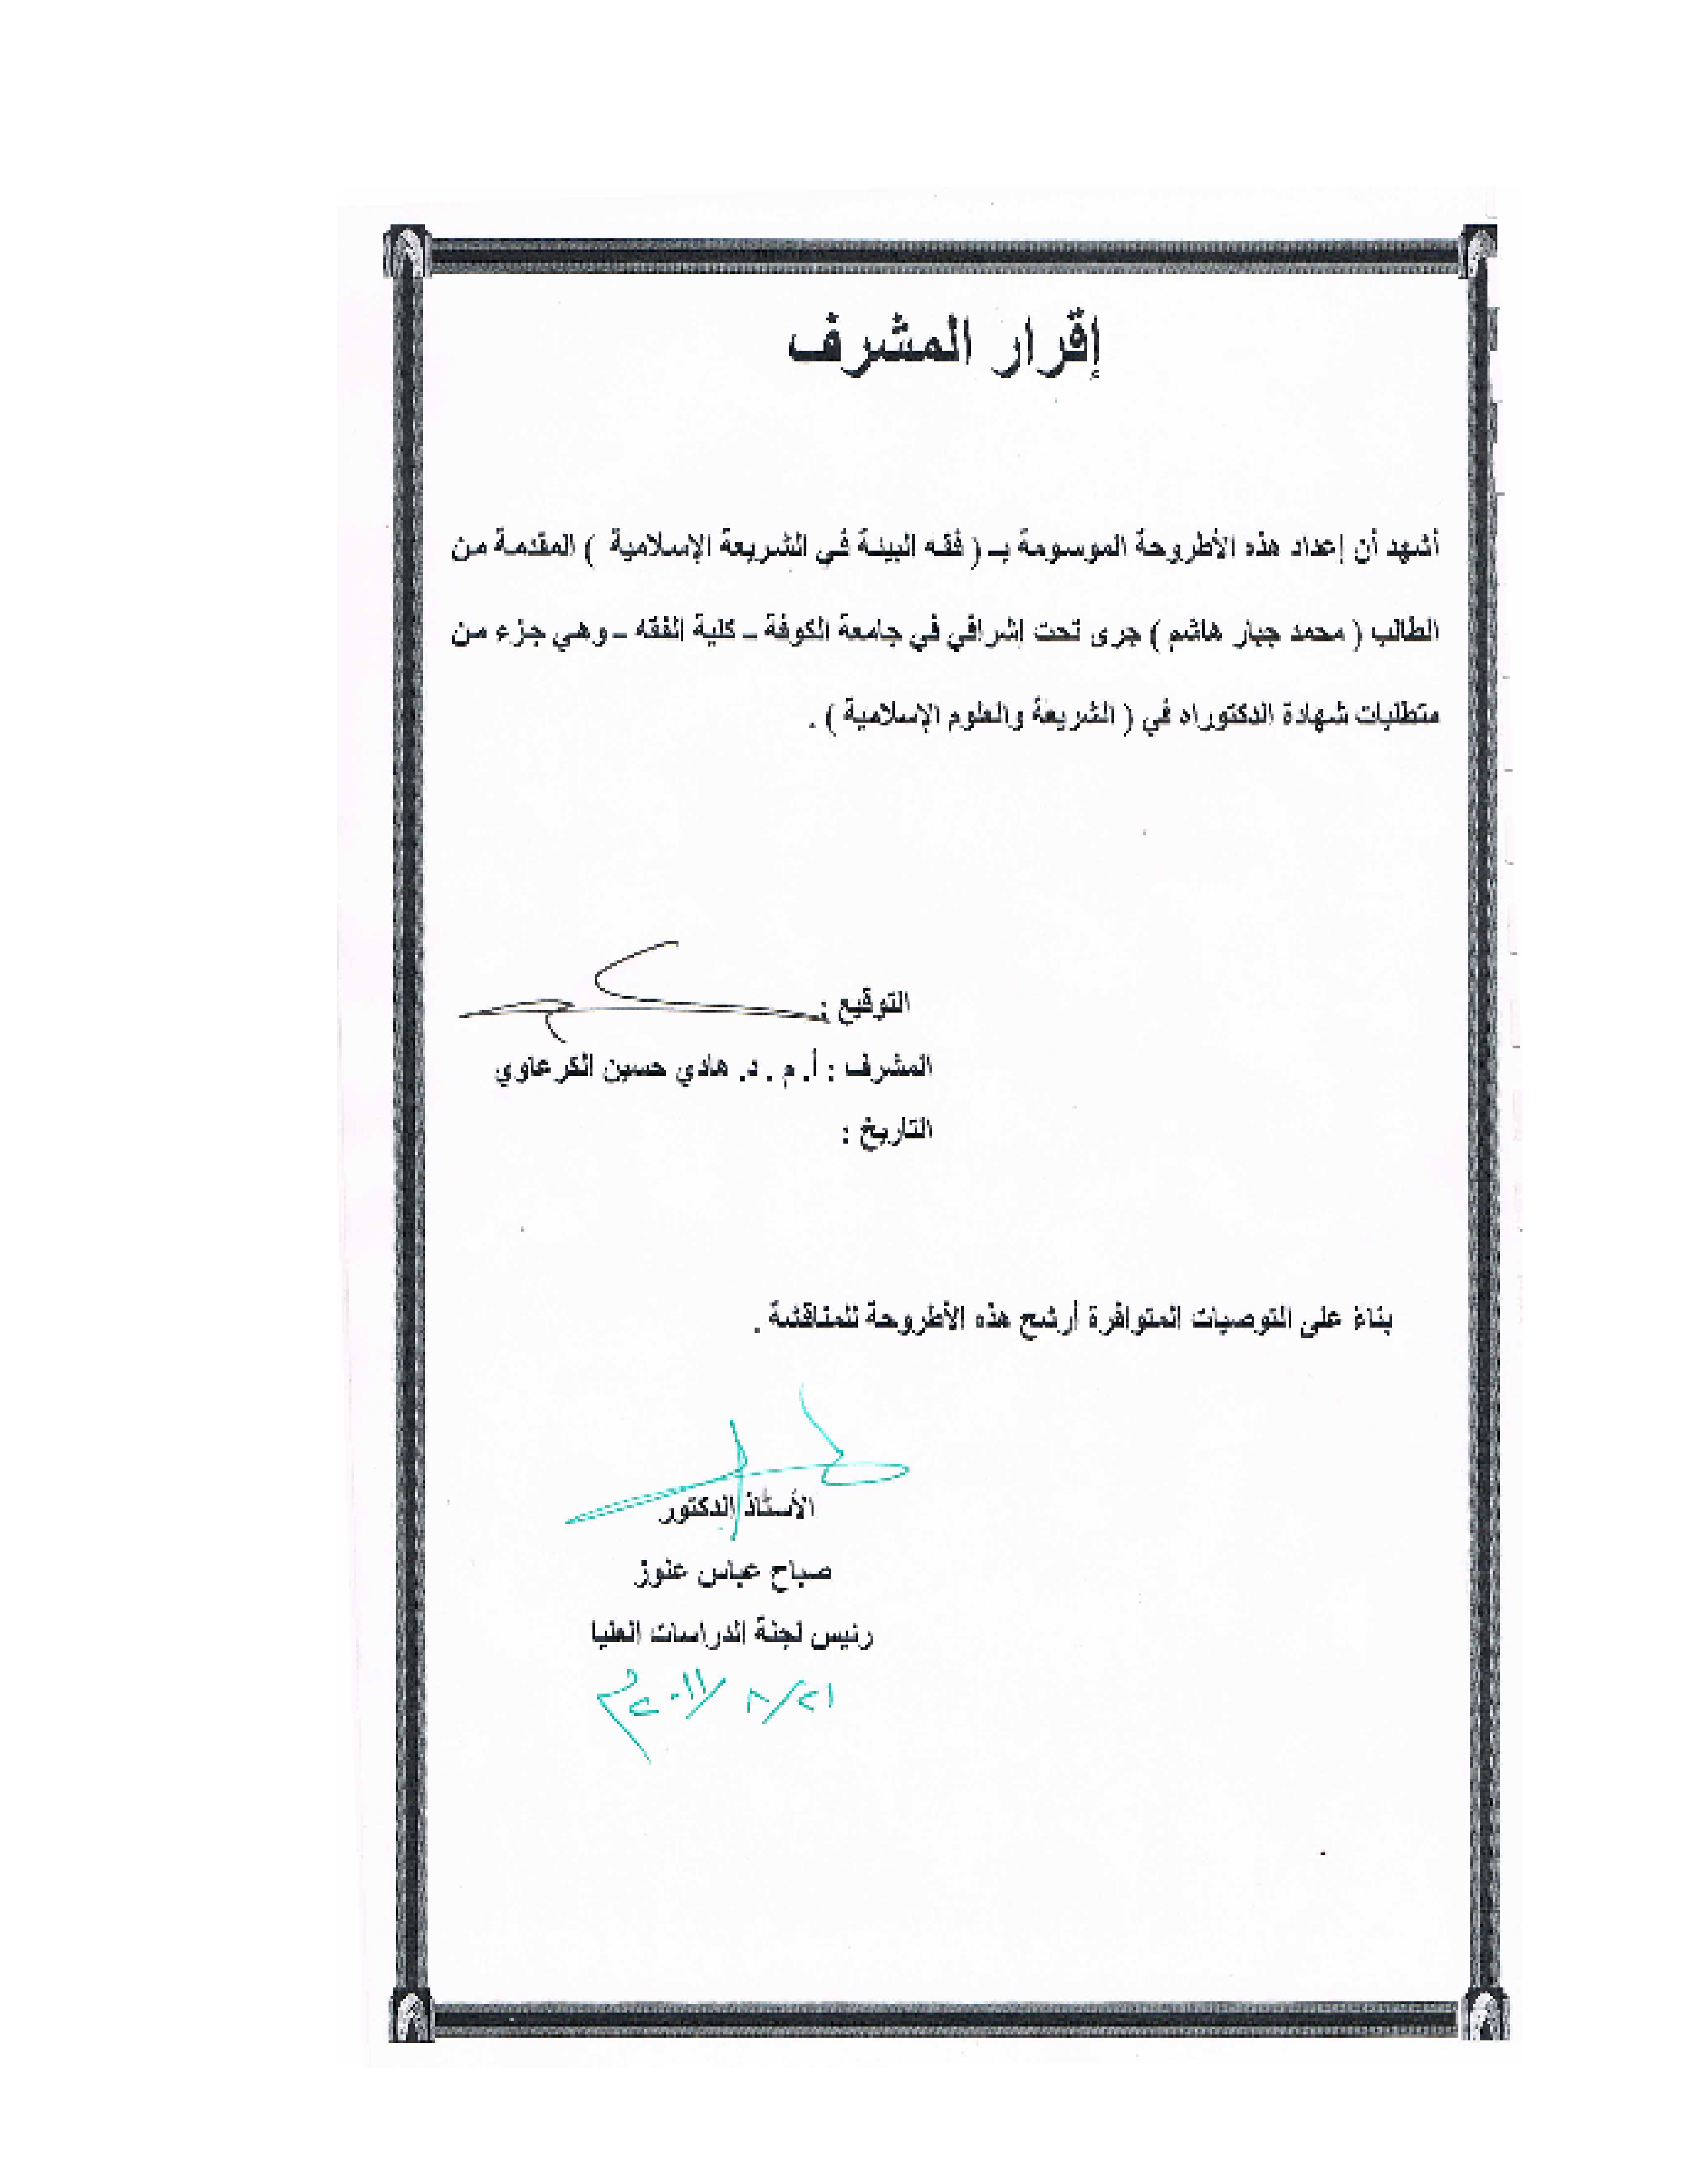 إقرار المشرف
أشهد أن إعداد هذه الأطروحة الموسومة بـ ( فقه البيئة في الشريعة الإسلامية ) المقدمة من
الطالب ( محمد جبار هاشم ) جرى تحت إشرافي في جامعة الكوفة – كلية الفقه – وهي جزء من
متطلبات شهادة الدكتوراه في ( الشريعة والعلوم الإسلامية ) .
التوقيع :
المشرف : أ. م . د. هادي حسين الكرعاوي
التاريخ :
بناءً على التوصيات المتوافرة أرشح هذه الأطروحة للمناقشة .
الأستاذ الدكتور
صباح عباس عنوز
رئيس لجنة الدراسات العليا
٢١/ ٨ /٢٠١١م